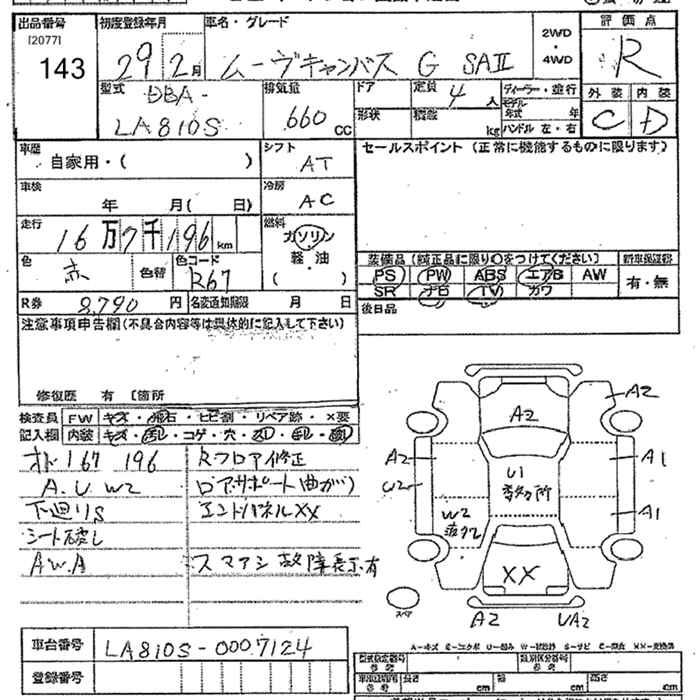 出品番号 初度登録年月 車名・グレード 2WD ・ 4WD 評価点
[2077]
143 29年 2月 ムーヴキャンバス G SAⅡ R
型式 排気量 ドア 定員 4人 ディーラー・並行 外装 内装
DBA-
LA810S 660cc 形状 積載 kg モデル年式 年 ハンドル 左・右 C D
車歴 自家用・( ) シフト AT セールスポイント (正常に機能するものに限ります)
車検 年 月( 日) 冷房 AC
走行 16万7千196km 燃料 ガソリン
軽・油
( )
色 赤 色替 色コード R67
装備品 (純正品に限り○をつけてください) 新車保証書
PS PW ABS エアB AW 有・無
SR ナビ TV カワ
R券 8,790円 名変通知期限 月 日 後日品
注意事項申告欄(不具合内容等は具体的に記入して下さい)
修復歴 有 [箇所
検査員 FW キズ・飛石・ヒビ割・リペア跡・×要
記入欄 内装 キズ・汚レ・コゲ・穴・スレ
オド167196 Rフロア修正
A.U W2 ロアサポート(曲がり)
下廻りS エンドパネルXX
シート破レ
A W.A スマアシ故障表示有
A2
A2
A2 A1
U2 U1
A1
W2
XX
スペア
A2 UA2
車台番号 LA810S-0007124
登録番号
A-キズ E-エクボ U-凹み S-サビ XX-交換済
型式指定番号 参考 類別区分番号 参考
長さ cm 幅 cm 高さ cm